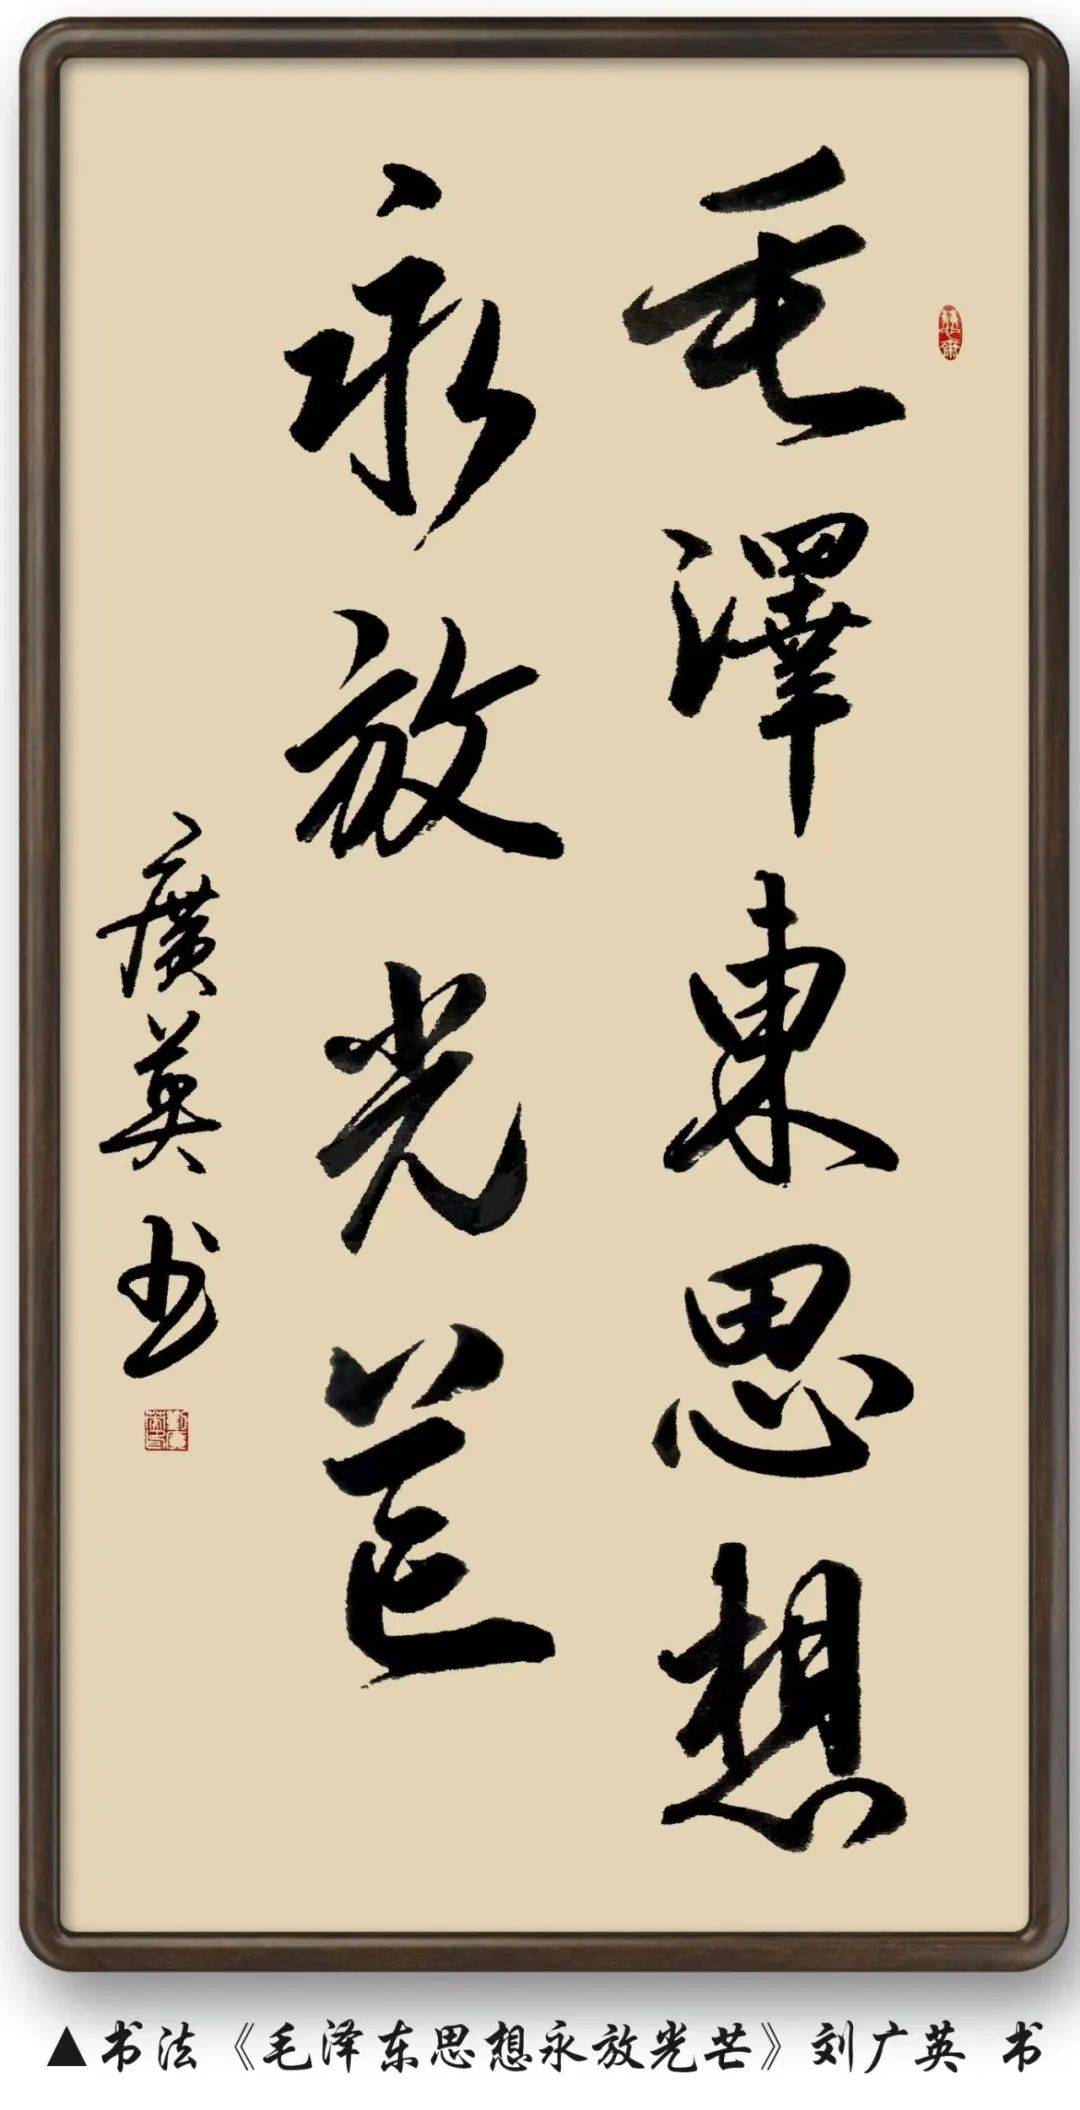 毛澤東思想
永放光芒
廣英书
▲书法《毛泽东思想永放光芒》刘广英 书